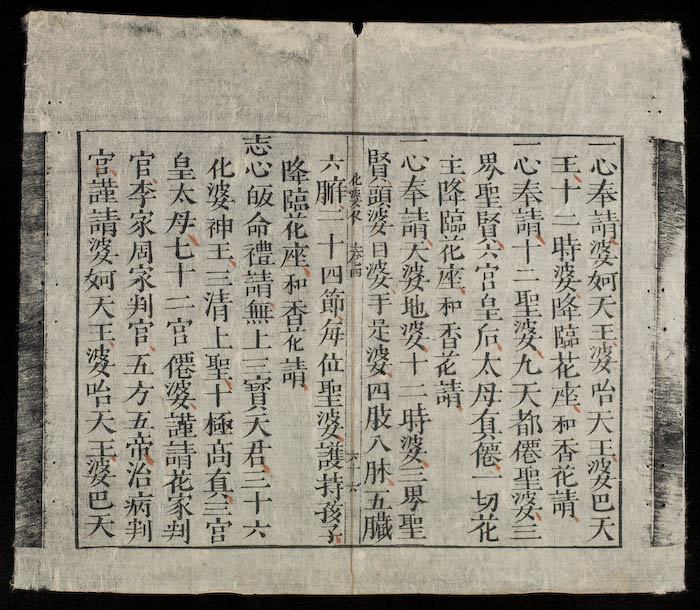 一心奉請、婆妸天王、婆哈天王、婆巴天
王、十二時婆、降臨花座、和香花請、
一心奉請、十二聖婆、九天都僊聖婆、三
界聖賢、六宮皇后、太母真僊、一切花
主、降臨花座、和香花請、
一心奉請、天婆地婆、十二時婆、三界聖
賢、頭婆目婆、手足婆、四肢八脉、五臟
六腑、二十四節、每位聖婆、護持孩子、
降臨花座、和香花請、
志心皈命禮請、無上三寶天君、三十六
化婆神王、三清上聖、十極高真、三官
皇太母、七十二宮僊婆、謹請花家判
官、李家周家判官、五方五帝治病判
官、謹請婆妸天王、婆哈天王、婆巴天